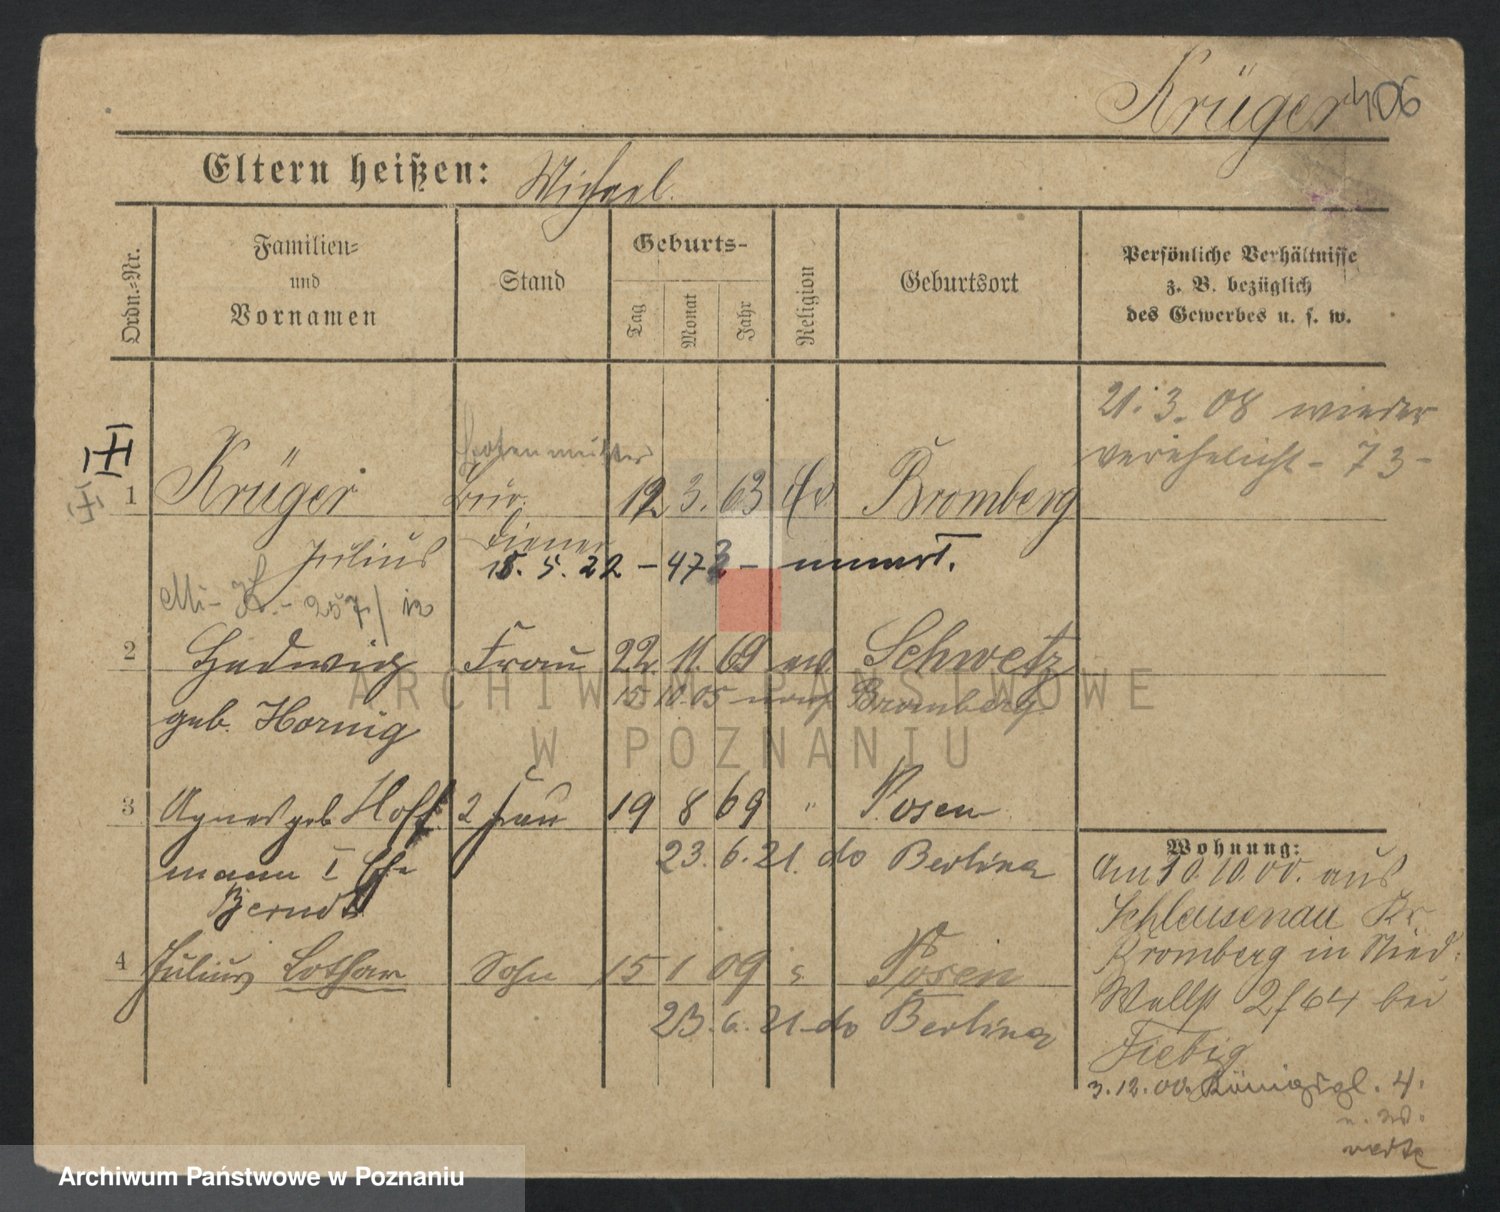 Krüger 406
Eltern heißen: Michael.
Ordn.-Nr.
Familien-
und
Vornamen
Stand
Geburts-
Tag
Monat
Jahr
Religion
Geburtsort
Persönliche Verhältnisse
z. B. bezüglich
des Gewerbes u. s. w.
21.3.08 wieder
verehelicht - 73 -
1 Krüger 12 3. 63 Ev Bromberg
Julius Diener
15. 5. 22 - 473 -
257/12
2 Hedwig Frau 22. 11. 69 ev Schwetz
15 10.05 Bromberg
geb. Hornig
3 Agnes geb Hoff 2 Frau 19 8 69 " Posen
mann I Ehe 23. 6. 21. do Berlin
Berndt
4 Julius Lothar Sohn 15 1 09 Posen
23. 6. 21. do Berlin
Wohnung:
Am 10.10.00. aus
Schleusenau Kr
Bromberg in Nied.
Wallst 2/64 bei
Fiebig
3.12.00. Königspl. 4.
ARCHIWUM PAŃSTWOWE
W POZNANIU
Archiwum Państwowe w Poznaniu